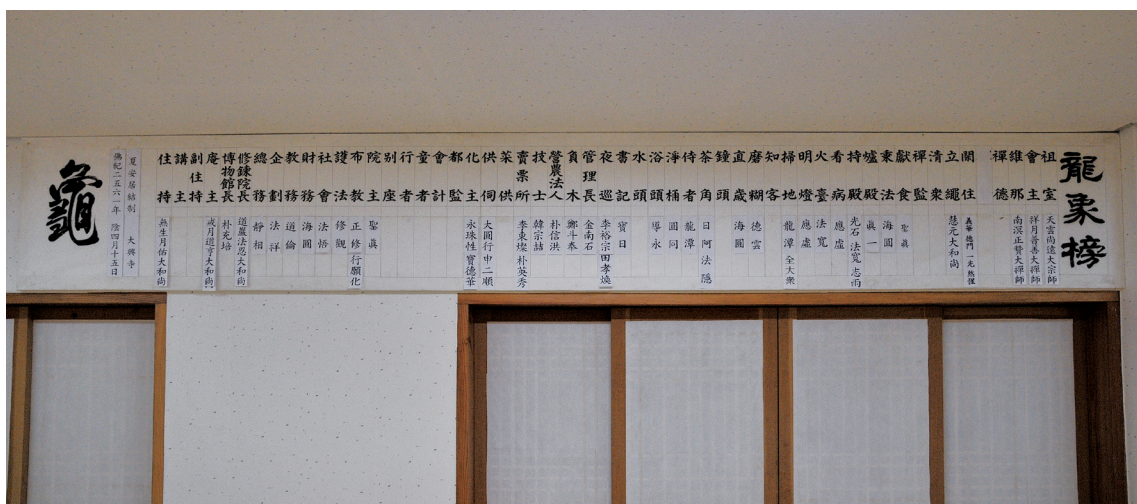 龍象榜
祖室 天雲尚遠大宗師
會主 祥月普善大禪師
維那 南溟正賛大禪師
禪德
閑住 義華 德門 一光 然禪
立繩 慧元大和尚
清衆
禪監
獻食 聖眞
秉法 海圓
爐殿 眞一
持殿 光石 法寬 志雨
看病 應虛
火臺 法寬
明燈 應虛
掃地 龍潭 全大衆
知客
磨糊 德雲
直歲 海圓
鐘頭
茶角 日阿 法隱
侍者 龍潭
淨桶 圓同
浴頭 導永
水頭
書記 寶日
夜巡 李裕宗 田孝煥
管理長 金南石
負木 鄭斗奉
營農法人 朴信洪
技士 韓宗喆
賣票所 李東燦 朴英秀
菜供
供伺 大圓行 申二順
化主 永珠性 寶德華
都監
會計
童者
行者
別座
院主 聖眞
布教 正修行 願化
護法 修觀
社會 法悟
財務 海圓
教務 道倫
企劃 法祥
總務 靜相
修鍊院長 道嚴法恩大和尚
博物館長 朴充培
庵主 戒月道亨大和尚
副住持
講主
住持 無生月佑大和尚
佛紀二五六一年 陰四月十五日
夏安居結制 大興寺
龜